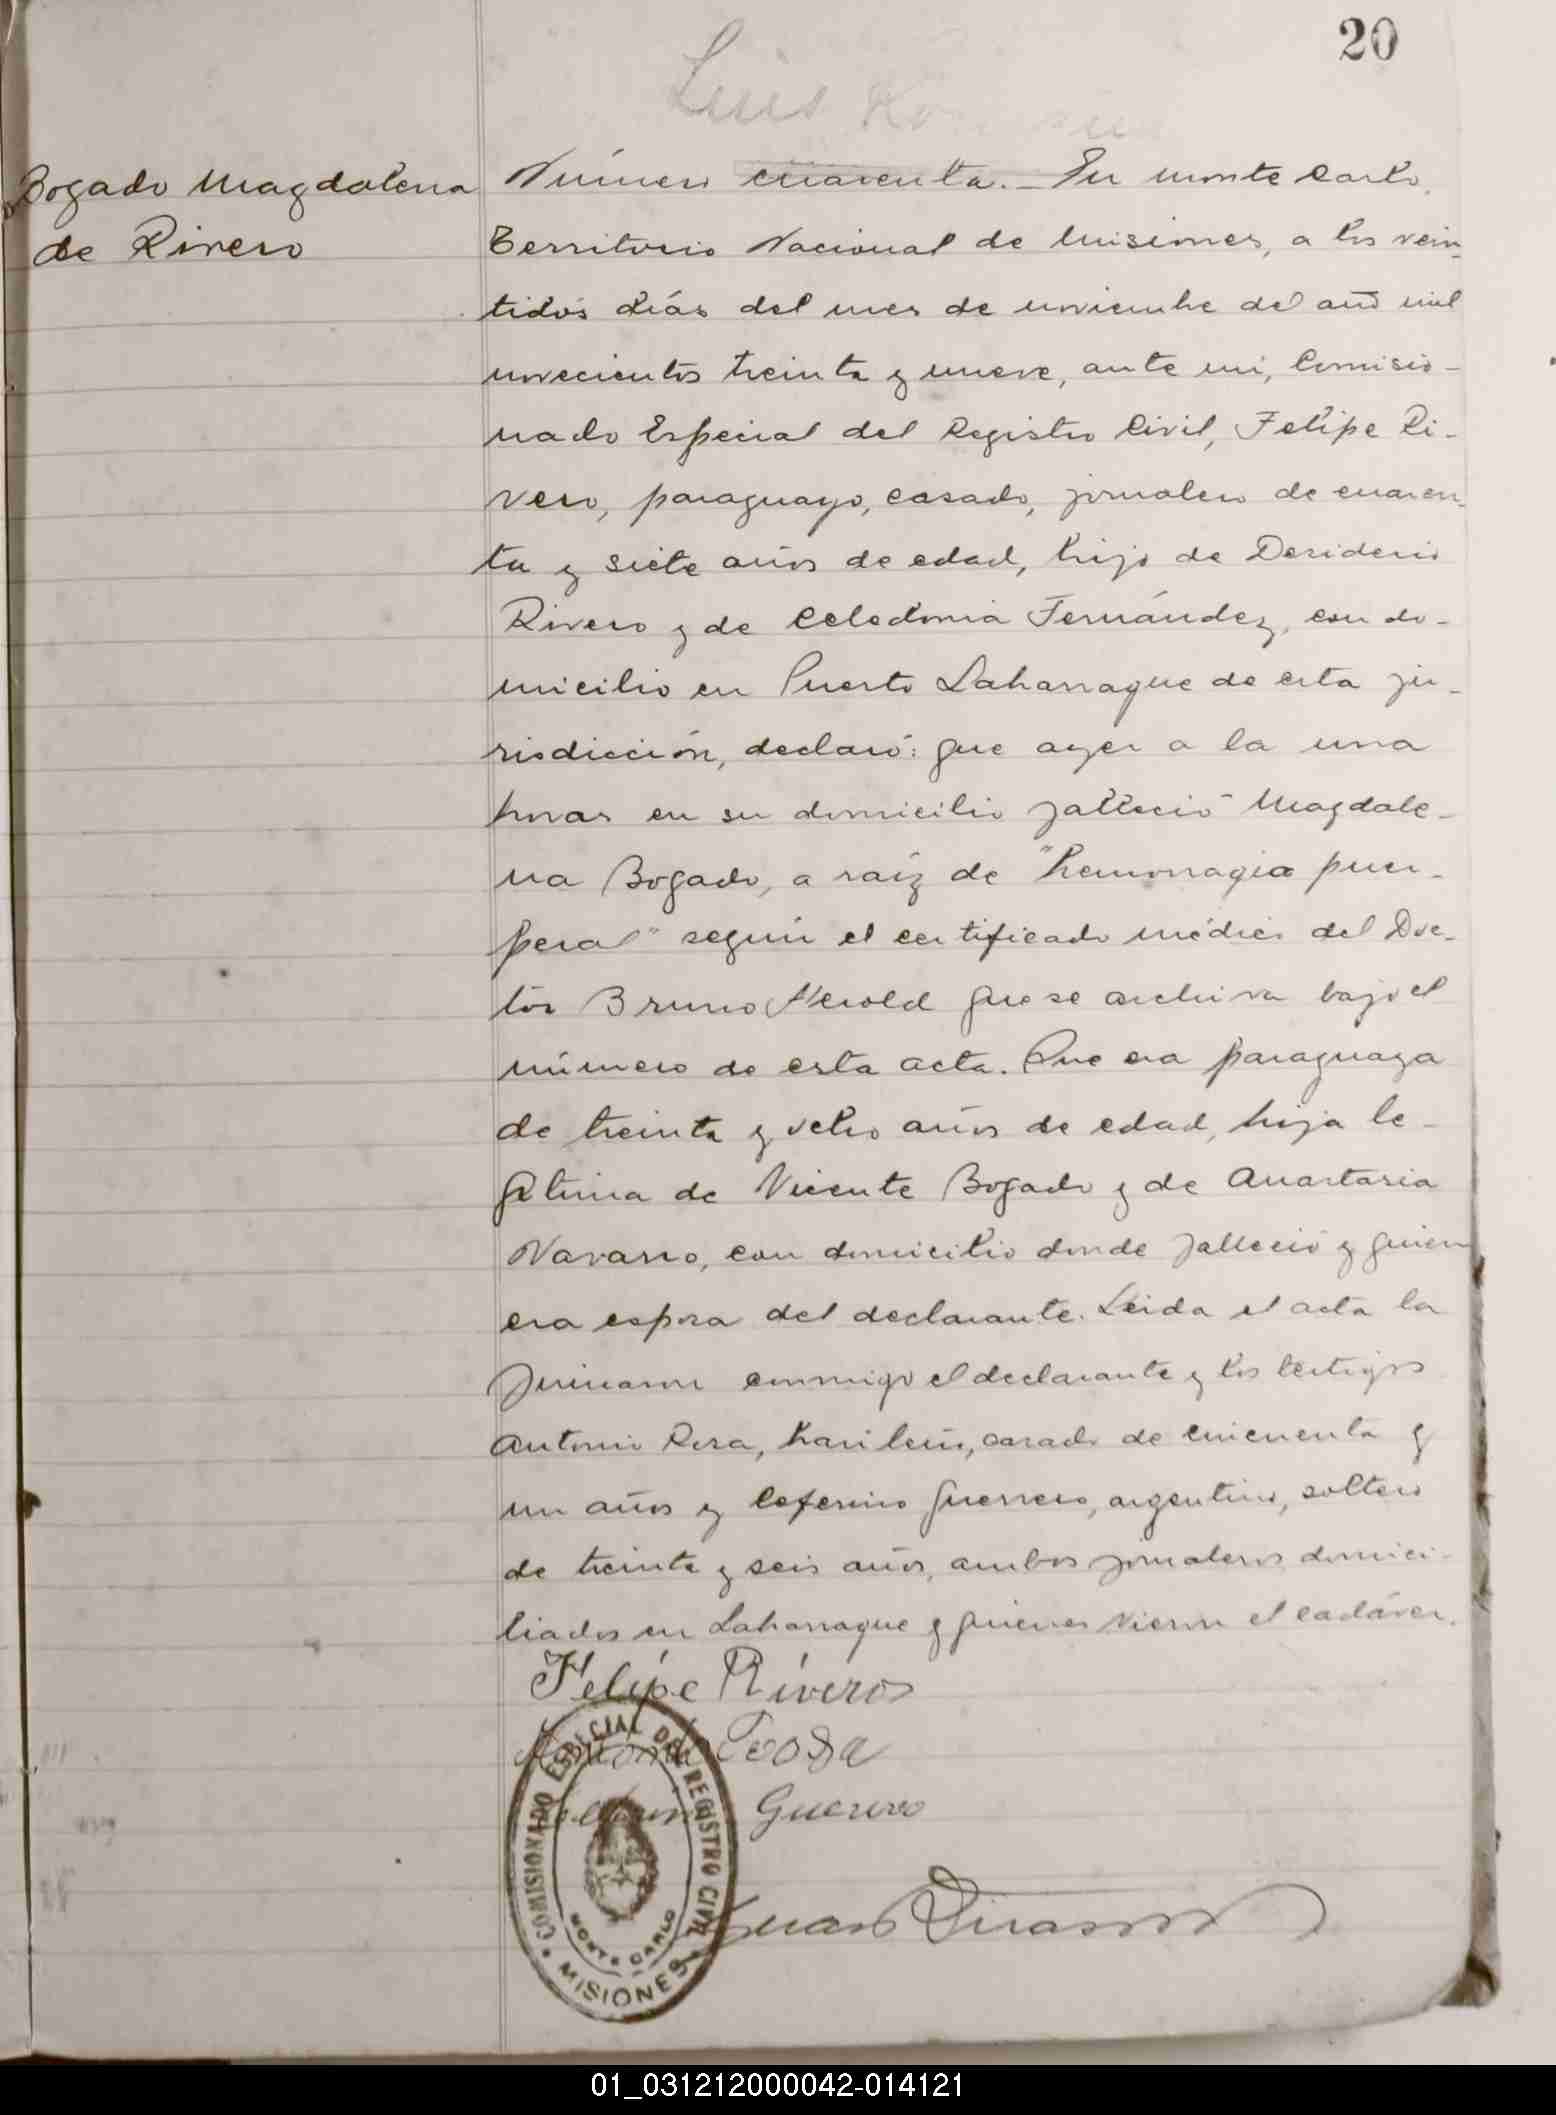 20
Luis
Bogado Magdalena
de Rivero
Número cuarenta.- En Monte Carlo,
Territorio Nacional de Misiones, a los vein-
tidós días del mes de noviembre del año mil
novecientos treinta y nueve, ante mi, Comisio-
nado Especial del Registro Civil, Felipe Ri-
vero, paraguayo, casado, jornalero de cuaren-
ta y siete años de edad, hijo de Desiderio
Rivero y de Celedonia Fernández, con do-
micilio en Puerto Laharrague de esta ju-
risdicción, declaró: que ayer a la una
horas en su domicilio falleció Magdale-
na Bogado, a raíz de "hemorragia puer-
peral" según el certificado médico del Doc-
tor Bruno Herold que se archiva bajo el
número de esta acta. Que era paraguaya
de treinta y ocho años de edad, hija le-
gítima de Vicente Bogado y de Anastasia
Navarro, con domicilio donde falleció y quien
era esposa del declarante. Leida el acta la
firmaron conmigo el declarante y los testigos
Antonio Rosa, brasileño, casado de cincuenta y
un años y Ceferino Guerrero, argentino, soltero
de treinta y seis años, ambos jornaleros domici-
liados en Laharrague y quienes vieron el cadáver.
Felipe Riveros
Antonio Rosa
Guerrero
COMISIONADO ESPECIAL DEL REGISTRO CIVIL
MONTE CARLO
MISIONES
01_031212000042-014121